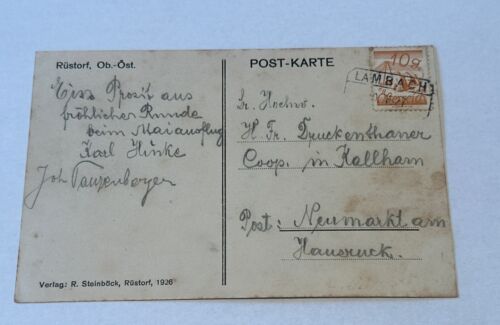 Rüstorf, Ob.-Öst.
POST-KARTE
10g
LAMBACH
Prosit aus
fröhlicher Runde
beim Maiausflug
Karl Hinke
Joh Tanzenberger
Sr. Hochw.
H. Fr. Druckenthaner
Coop. in Kallham
Post: Neumarkt am
Hausruck.
Verlag: R. Steinböck, Rüstorf, 1926